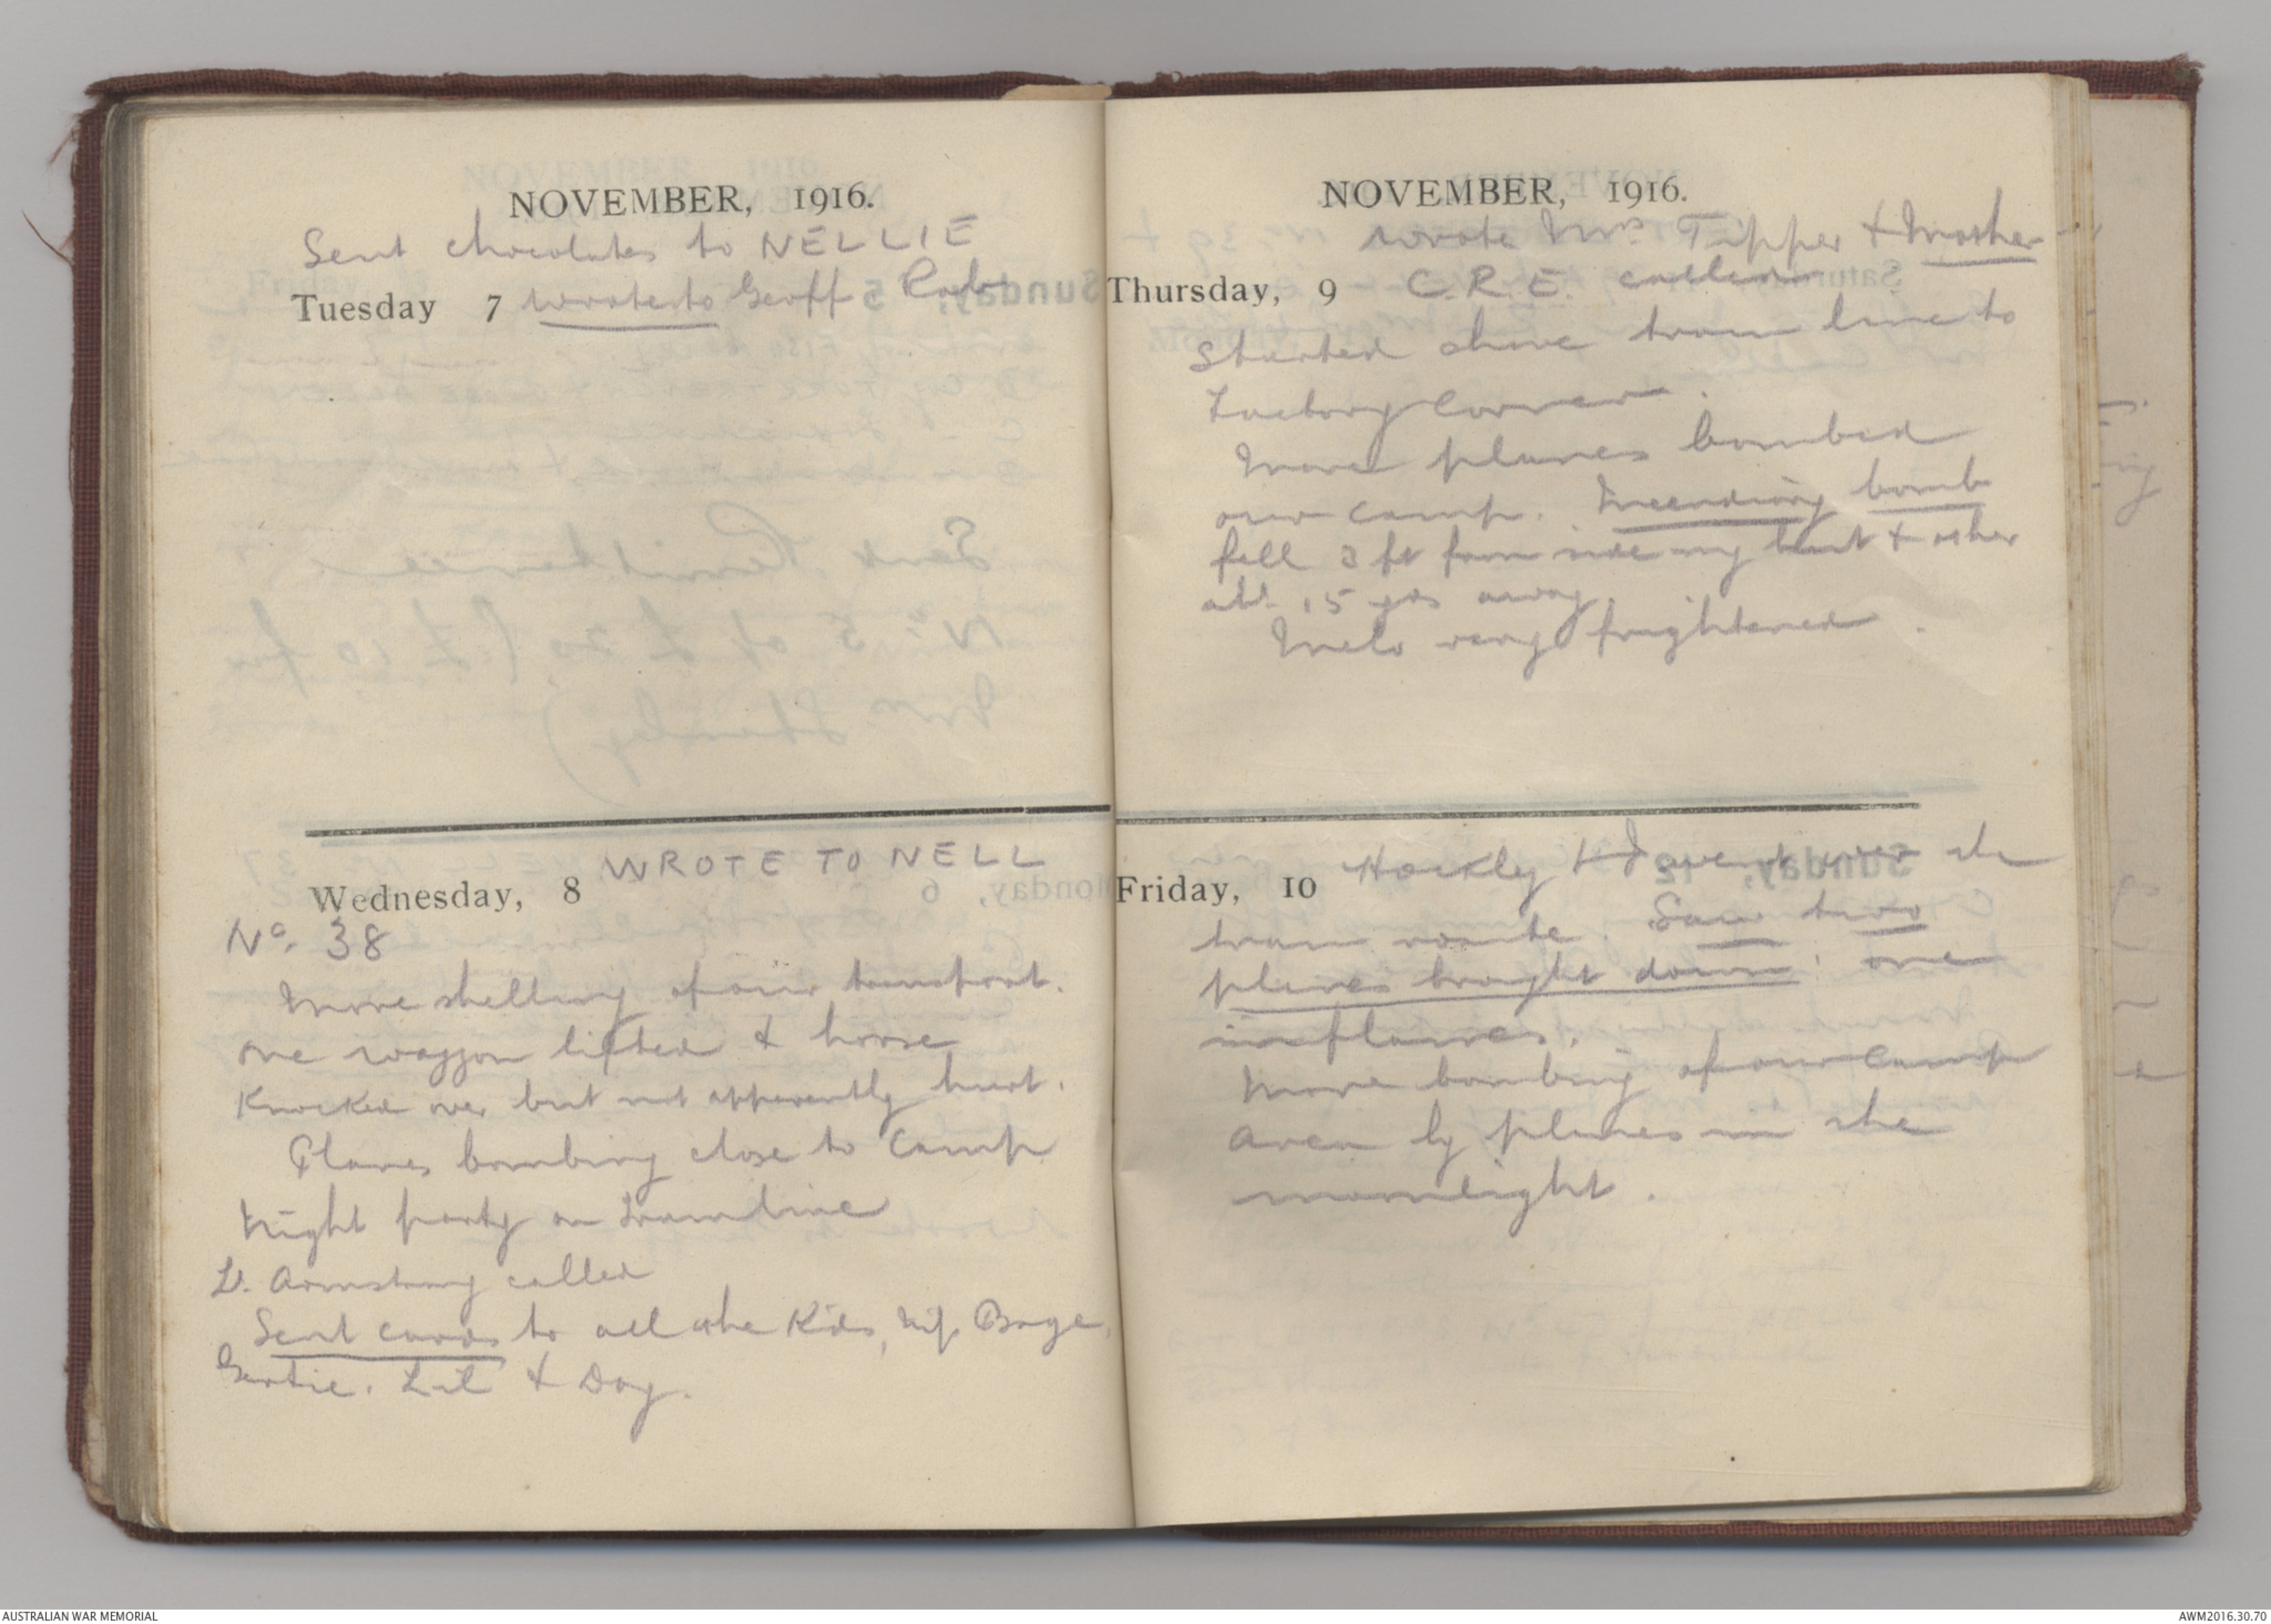 NOVEMBER, 1916.
Sent chocolates to NELLIE
Tuesday 7 wrote to Geoff
Wednesday, 8 WROTE TO NELL
No. 38
More shelling of our transport.
One waggon lifted & horse
knocked over but not apparently hurt.
Planes bombing close to camp
Night party on tramline
Lt. Armstrong called
Sent cards to all the kids,
Gertie. Lil & Day.
NOVEMBER, 1916.
wrote Mrs Tipper & Mother
Thursday, 9 C.R.E. called
Started above tram line to
Factory Corner.
More planes bombed
our camp. Incendiary bomb
fell 3 ft from side my hut & other
abt 15 yds away.
very frightened.
Friday, 10 Hockly & I went over the
tram route. Saw two
planes brought down: one
in flames.
More bombing of our camp
area by planes in the
moonlight.
AUSTRALIAN WAR MEMORIAL
AWM2016.30.70